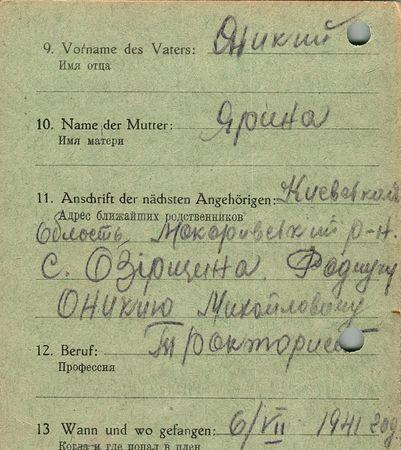 9. Vorname des Vaters: Оникий
Имя отца
10. Name der Mutter: Ярина
Имя матери
11. Anschrift der nächsten Angehörigen: Киевская
Адрес ближайших родственников
Область Макаривский р-н.
с. Озірщина
Оникию Михойловочу
12. Beruf: Тракторист
Профессия
13 Wann und wo gefangen: 6/VII 1941 год
Когда и где попал в плен